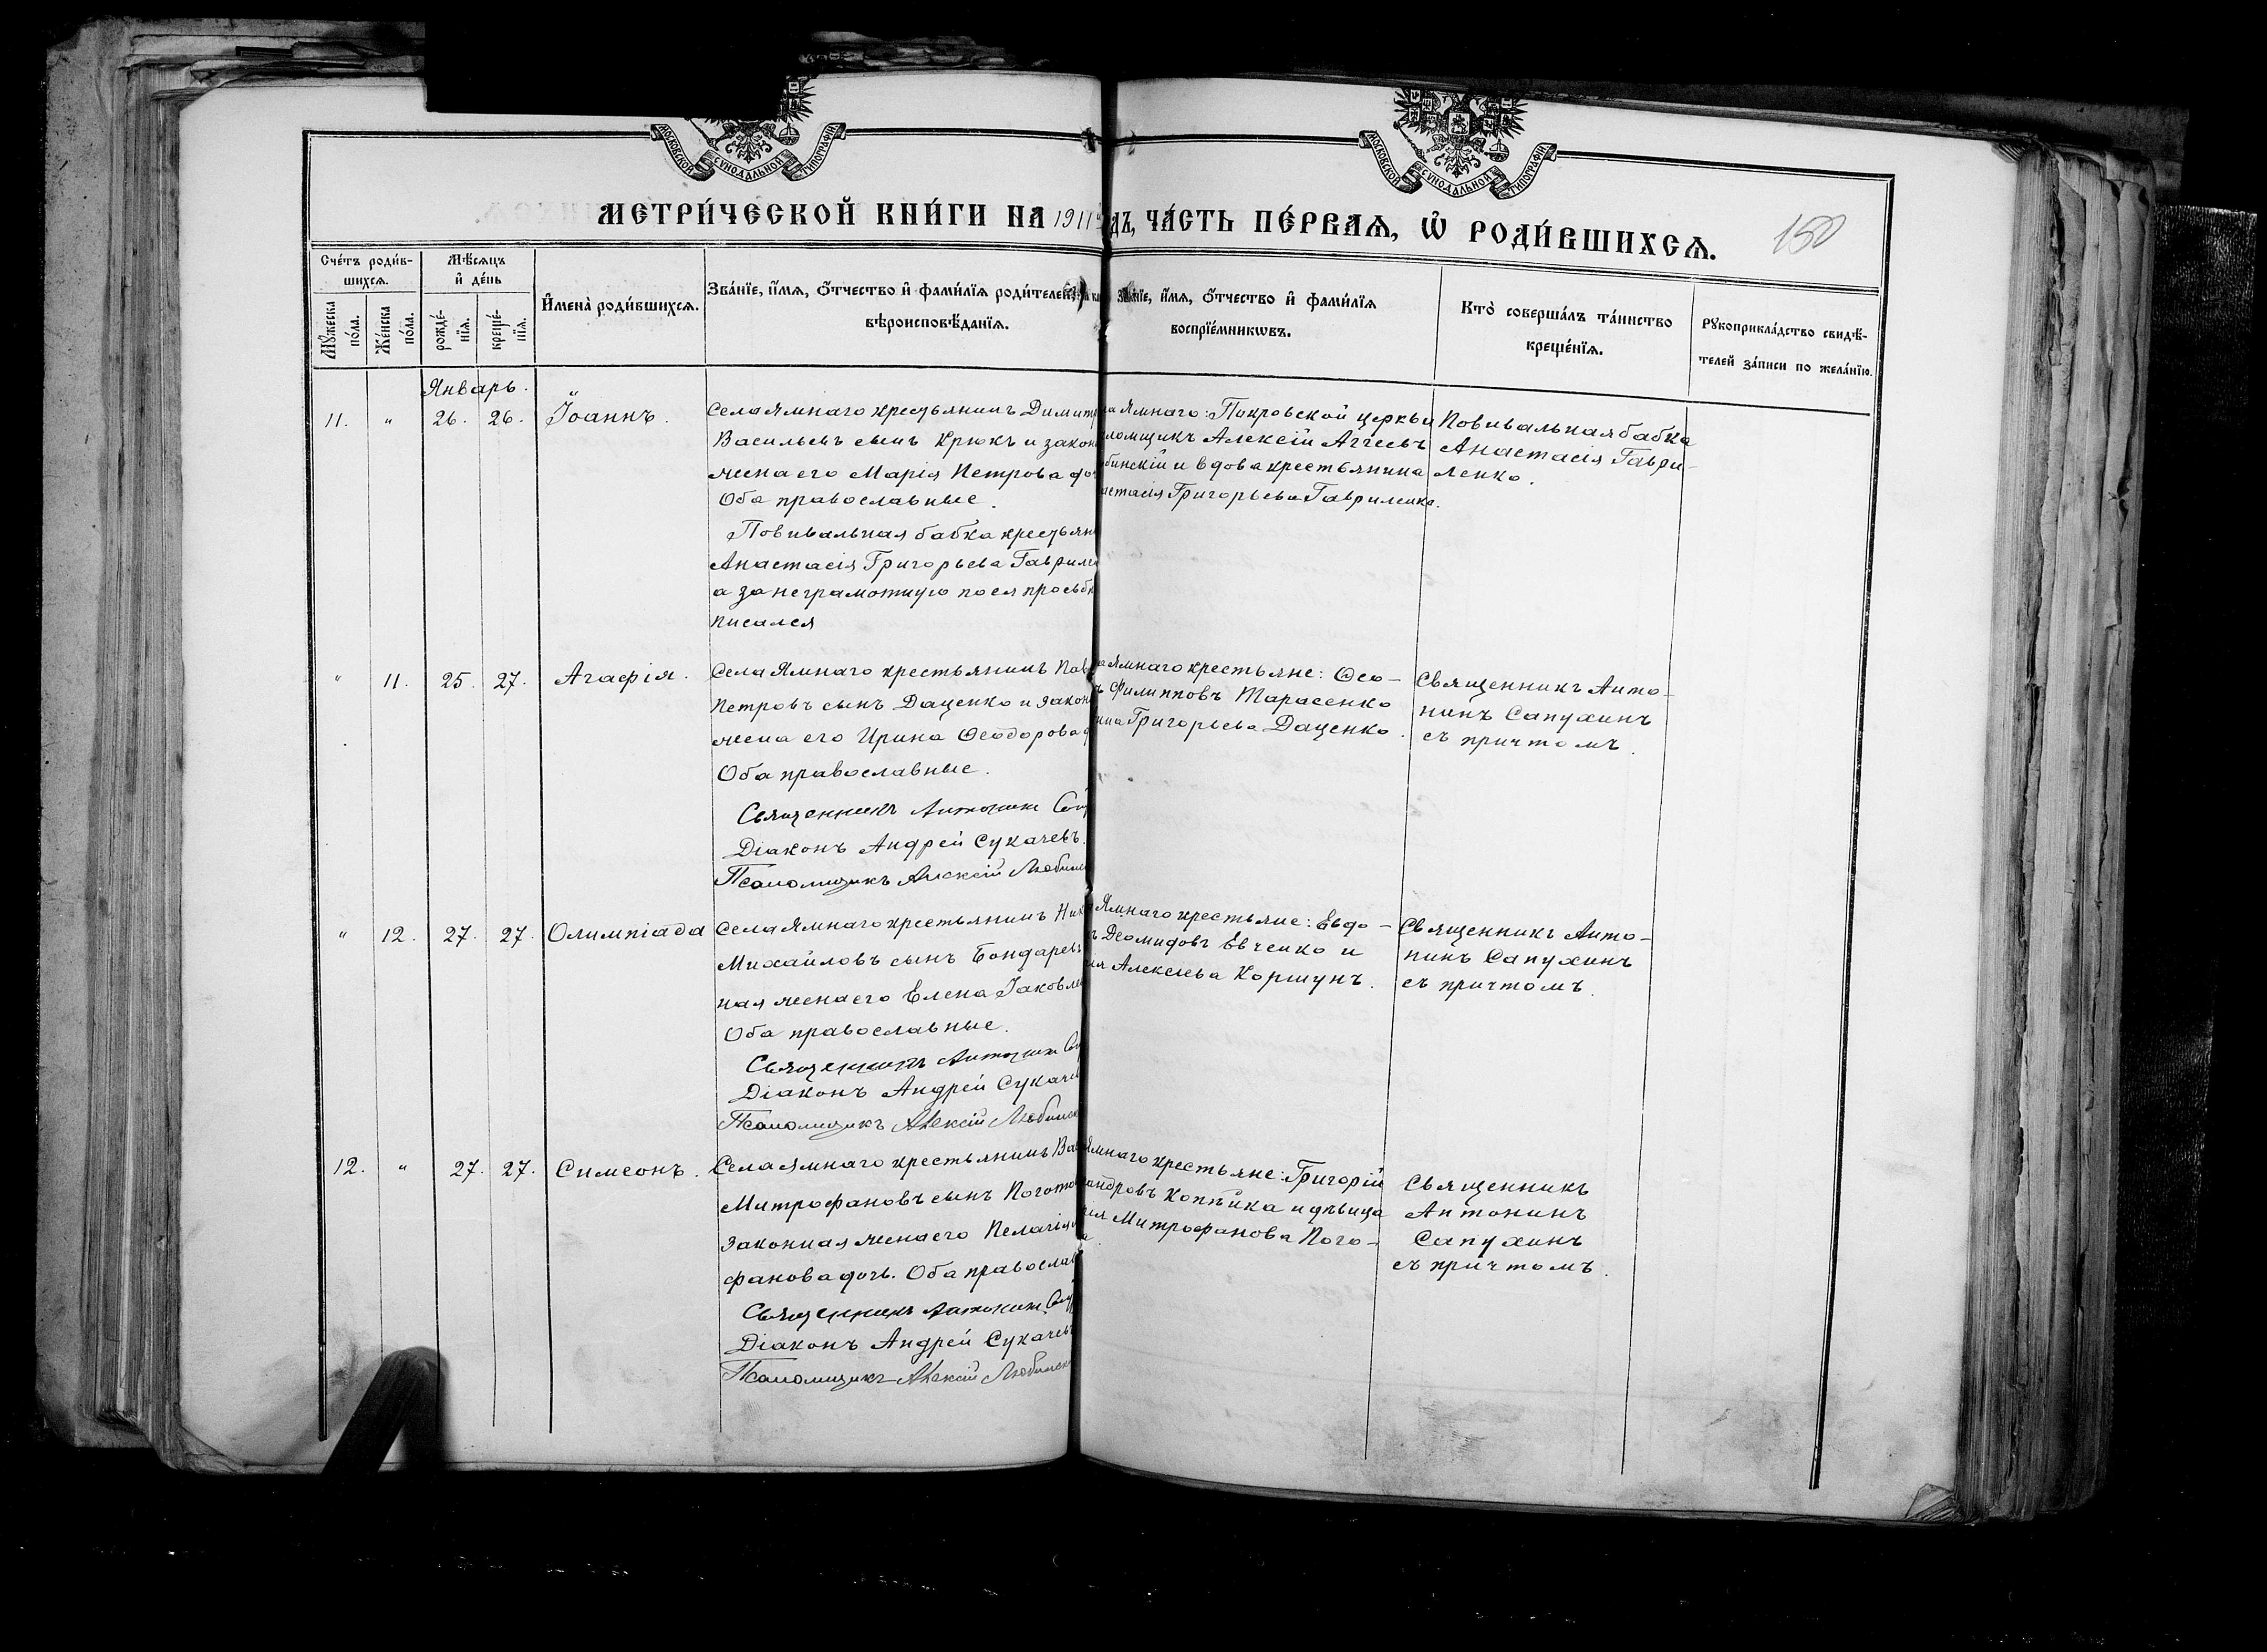 МОСКОВСКОЙ СУНОДАЛЬНОЙ ТИПОГРАФІИ
МОСКОВСКОЙ СУНОДАЛЬНОЙ ТИПОГРАФІИ
МЕТРИ́ЧЕСКОЙ КНИ́ГИ НА 1911 ДЪ, ЧА́СТЬ ПЕ́РВАѦ, Ѡ҆ РОДИ́ВШИХСѦ.
150
Сче́тъ роди́в-
шихсѧ.
Мꙋ́жеска
по́ла.
Же́нска
по́ла.
Мѣ́сѧцъ
и҆ де́нь
рожде́-
нїѧ.
креще́-
нїѧ.
И҆мена̀ роди́вшихсѧ.
Зва́нїе, и҆́мѧ, ѻ҆́тчество и҆ фами́лїѧ роди́телей,
вѣроисповѣ́данїѧ.
Зва́нїе, и҆́мѧ, ѻ҆́тчество и҆ фами́лїѧ
воспрїе́мникѡвъ.
Кто̀ соверша́лъ та́инство
креще́нїѧ.
Рꙋкоприкла́дство свидѣ́-
телей за́писи по жела́нїю.
Январь.
11. " 26. 26. Іоаннъ.
Села Ямнаго крестьянинъ Димит
Васильевъ сынъ Крюкъ и закон
жена его Марія Петрова до
Оба православные.
Повивальная бабка крестьян
Анастасія Григорьева Гаврил
а за неграмотную по ея просьб
писался
ла Ямнаго: Покровской церкви
ломщикъ Алексій Аггеевъ
бинскій и вдова крестьянина
астасія Григорьева Гавриленко.
Повивальная бабка
Анастасія Гаври-
ленко.
" 11. 25. 27. Агафія.
Села Ямнаго крестьянинъ Пав
Петровъ сынъ Даценко и закон
жена его Ирина Ѳеодорова
Оба православные.
Священникъ Антонин Сап
Діаконъ Андрей Сукачевъ.
Псаломщикъ Алексій Любин
а Ямнаго крестьяне: Ѳео-
ъ Филипповъ Тарасенко
ина Григорьева Даценко.
Священникъ Анто-
нинъ Сапухинъ
съ причтомъ.
" 12. 27. 27. Олимпіада
Села Ямнаго крестьянинъ Ник
Михайловъ сынъ Бондарев
ная жена его Елена Іаковле
Оба православные.
Священникъ Антонин Са
Діаконъ Андрей Сукаче
Псаломщикъ Алексій Любинск
Ямнаго крестьяне: Евдо-
ъ Деомидовъ Евченко и
ія Алексѣева Коршунъ.
Священникъ Анто-
нинъ Сапухинъ
съ причтомъ.
12. " 27. 27. Симеонъ.
Села Ямнаго крестьянинъ Ва
Митрофановъ сынъ Погото
законная жена его Пелагія
фанова дочь. Оба православ
Священникъ Антонин Сап
Діаконъ Андрей Сукачев
Псаломщикъ Алексій Любинск
Ямнаго крестьяне: Григорій
андровъ Копѣйка и дѣвица
рія Митрофанова Пого-
а.
Священникъ
Антонинъ
Сапухинъ
съ причтомъ.